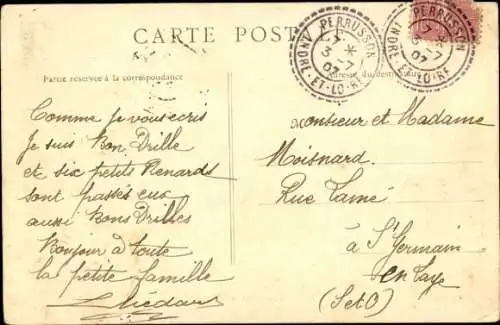 CARTE POSTALE
Partie réservée à la correspondance
Adresse du destinataire
PERRUSSON
3 * 7 07
INDRE-ET-LOIRE
PERRUSSON
3 7 07
INDRE-ET-LOIRE
Comme je vous ecris
Je suis Bon Drille
et six petits Renards
sont passés eux
aussi Bons Drilles
Bonjour à toute
la petite famille
Monsieur et Madame
Moisnard
Rue
à St Germain
en Laye
(S et O)